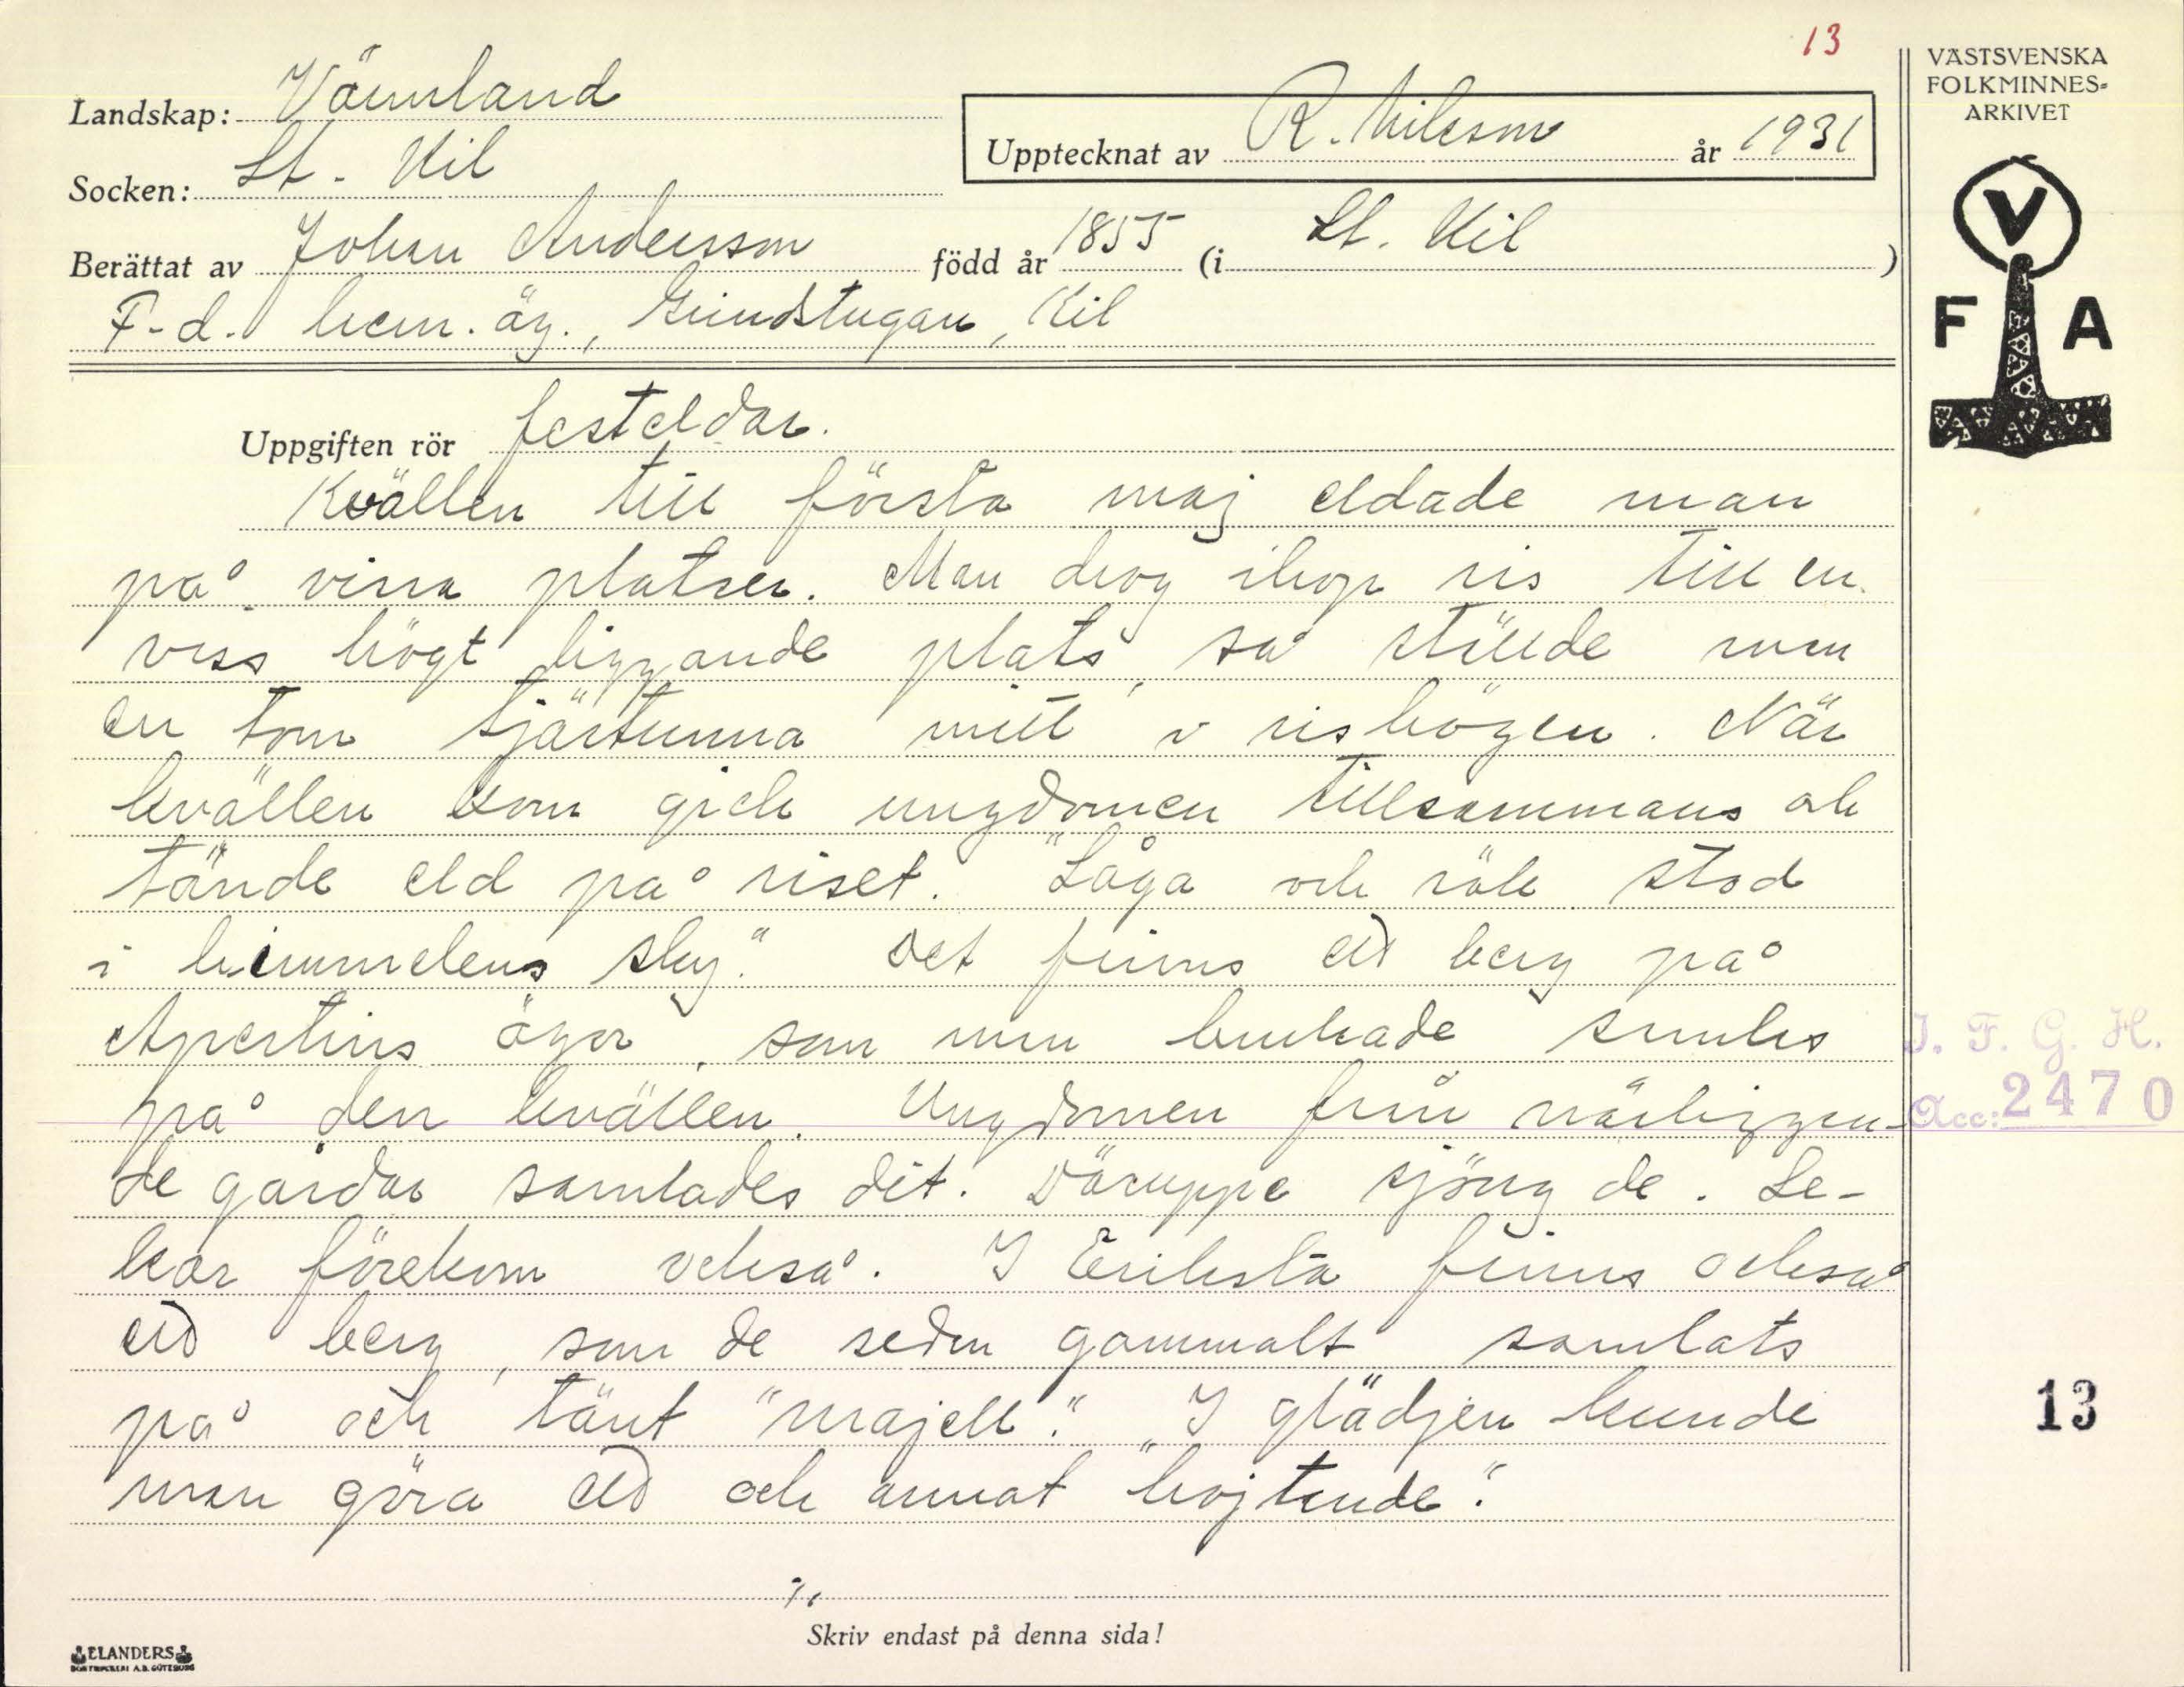 13
VÄSTSVENSKA
FOLKMINNES-
ARKIVET
Landskap: Värmland
Upptecknat av R. Nilsson år 1931
Socken: St. Kil
Berättat av Johan Andersson född år 1855 (i St. Kil)
F.d. hem.äg., Grindstugan, Kil
V
F A
Uppgiften rör festeldar.
Kvällen till första maj eldade man
på vissa platser. Man drog ihop ris till en
viss högt liggande plats, så ställde man
en tom tjärtunna mitt i rishögen. När
kvällen kom gick ungdomen tillsammans och
tände eld på riset. "Låga och rök stod
i himmelens sky." Det finns ett berg på
Apertins ägor, som man brukade samlas
på den kvällen. Ungdomen från närliggan-
de gårdar samlades dit. Däruppe sjöng de. Le-
kar förekom också. I Eriksta finns också
ett berg, som de sedan gammalt samlats
på och tänt "majell". I glädjen kunde
man göra ett och annat "hojtende".
J. F. G. H.
Acc: 2470
13
Skriv endast på denna sida!
ELANDERS
BOKTRYCKERI A.B. GÖTEBORG